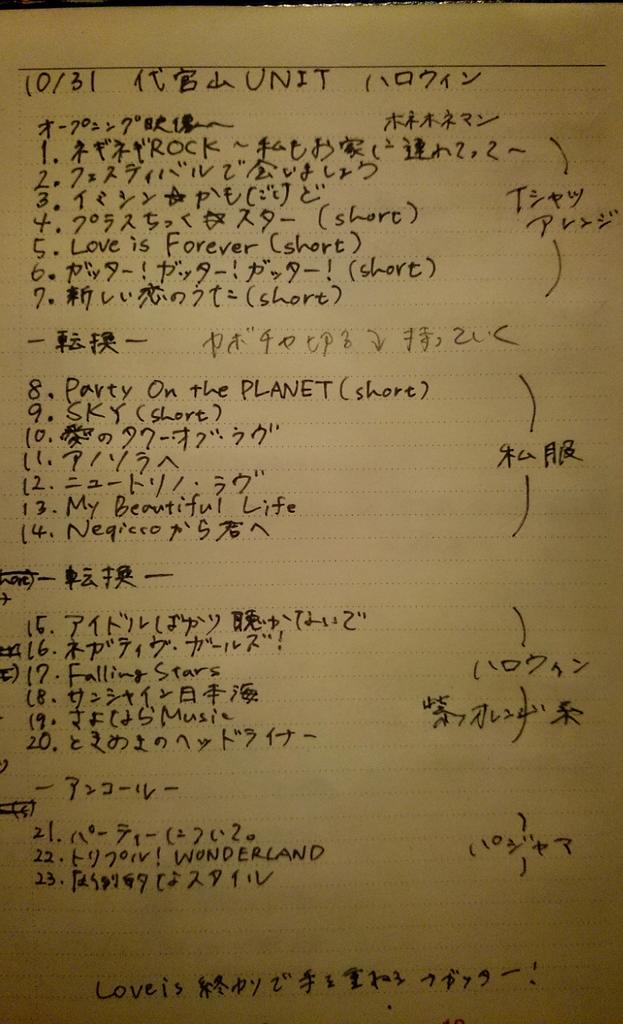 10/31 代官山UNIT ハロウィン
オープニング映像へ ホネホネマン
1. ネギネギROCK ～私もお家に連れてって～
2. フェスティバルで会いましょう
3. イミシン☆かもだけど
4. プラスちっく☆スター (short)
5. Love is Forever (short)
6. ガッター!ガッター!ガッター! (short)
7. 新しい恋のうた (short)
Tシャツ
アレンジ
ー 転換 ー カボチャ切る→持っていく
8. Party On the PLANET (short)
9. SKY (short)
10. 愛のタワー・オブ・ラヴ
11. アノソラへ
12. ニュートリノ・ラヴ
13. My Beautiful Life
14. Negiccoから君へ
私服
ー 転換 ー
15. アイドルばかり聴かないで
16. ネガティヴ・ガールズ!
17. Falling Stars
18. サンシャイン日本海
19. さよならMusic
20. ときめきのヘッドライナー
ハロウィン
紫 オレンジ系
ー アンコール ー
21. パーティーについて。
22. トリプル! WONDERLAND
23. 圧倒的なスタイル
パジャマ
Love is 終わりで手を重ねる→ガッター!